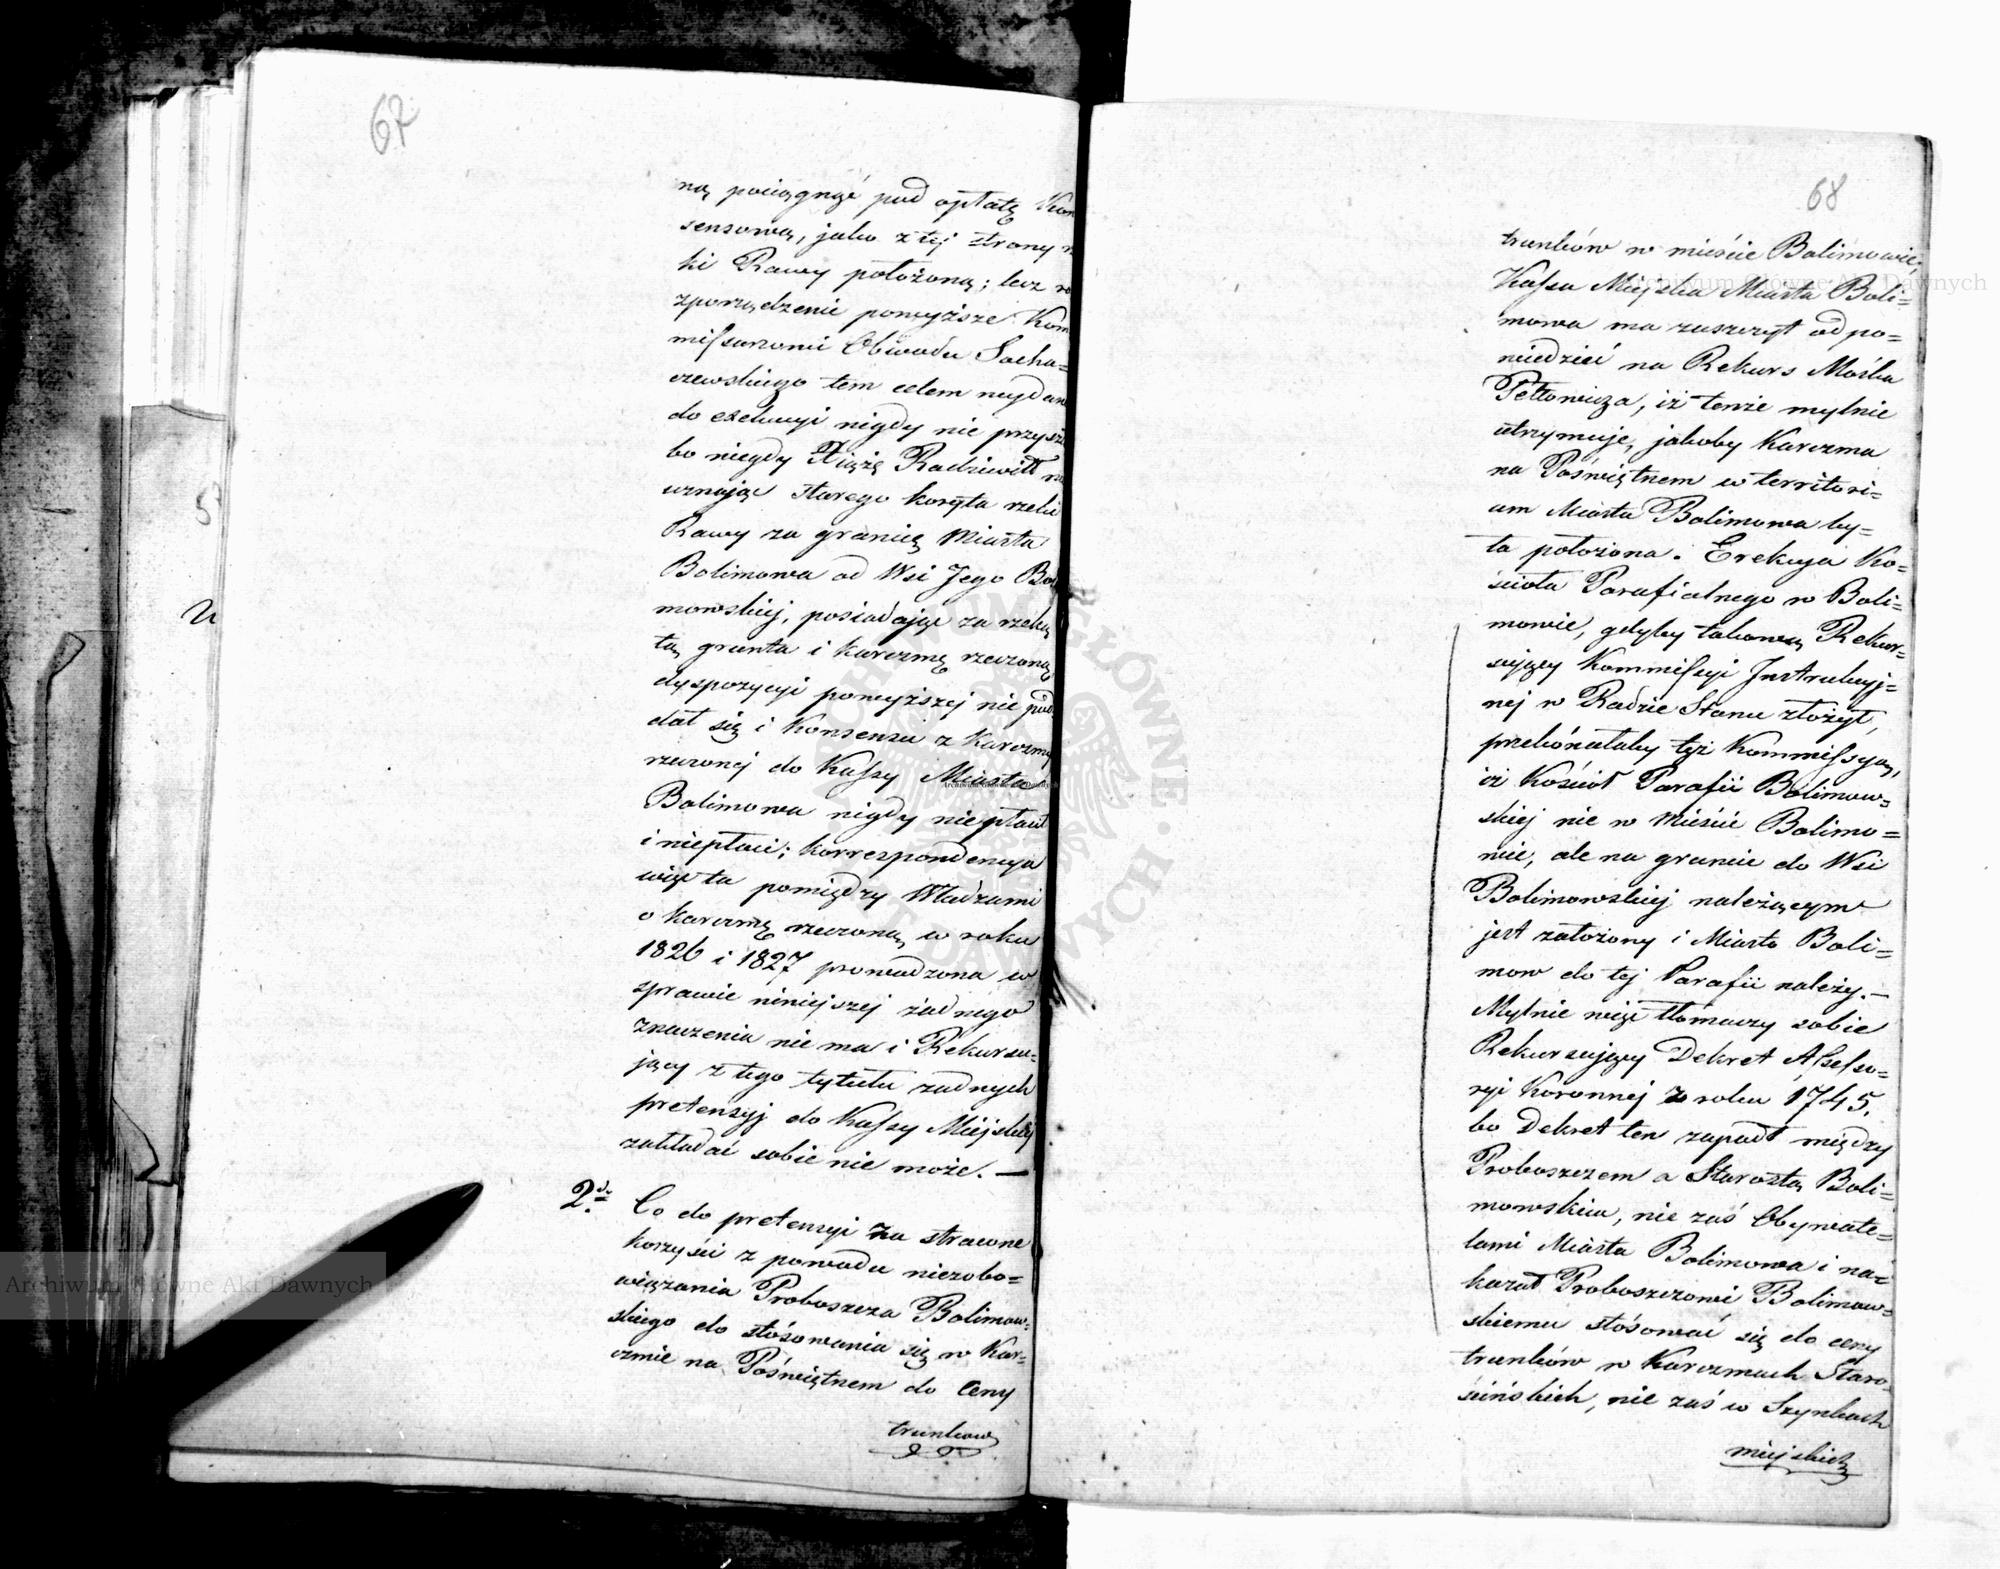 67
ną pociągnąć pod opłatę Kon
sensową, jako z tej strony
ki Rawy położoną; lecz
zporządzenie powyższe Kom
missarzowi Obwodu Socha=
czewskiego tem celem wydane
do exekucyi nigdy nie przysz
bo niegdy Xiążę Radziwiłł
uznając starego koryta rzeki
Rawy za granicę Miasta
Bolimowa od Wsi Jego Bol
mowskiej, posiadając za rzeką
tą grunta i karczmę rzeczoną
dyspozycyi powyższej nie pod
dał się i Konsensu z karczmy
rzeczonej do Kassy Miasta
Bolimowa nigdy niepłacił
i niepłaci; korrespondencya
więc ta pomiędzy Władzami
o karczmę rzeczoną w roku
1826 i 1827 prowadzona w
sprawie niniejszej żadnego
znaczenia nie ma i Rekursu=
jący z tego tytułu żadnych
pretensyj do Kassy Miejskiej
zakładać sobie nie może. —
2do Co do pretensyi za stracone
korzyści z powodu niezobo=
wiązania Proboszcza Bolimow=
skiego do stósowania się w Kar=
czmie na Poświętnem do Ceny
trunków
68
trunków w mieście Bolimowie,
Kassa Miejska Miasta Boli=
mowa ma zaszczyt odpo=
wiedzieć na Rekurs Mośka
Pełtowicza, iż tenże mylnie
utrzymuje, jakoby Karczma
na Poświętnem w territori=
um Miasta Bolimowa by=
ła położona. Erekcya Ko=
ścioła Parafialnego w Boli=
mowie, gdyby takową Rekur=
sujący Kommissyi Instrukcyj=
nej w Radzie Stanu złożył,
przekónałaby tęż Kommissyą,
iż Kościoł Parafii Bolimow=
skiej nie w Mieście Bolimo=
wie, ale na gruncie do Wsi
Bolimowskiej należącym
jest założony i Miasto Boli=
mow do tej Parafii należy. —
Mylnie więc tłomaczy sobie
Rekursujący Dekret Assesso=
ryi Koronnej z roku 1745.
bo Dekret ten zapadł między
Proboszczem a Starostą Boli=
mowskim, nie zaś Obywate=
lami Miasta Bolimowa i na=
kazał Proboszczowi Bolimow=
skiemu stósować się do ceny
trunków w Karczmach Staro=
ścińskich, nie zaś w Szynkach
miejskich
Archiwum Główne Akt Dawnych
Archiwum Główne Akt Dawnych
Archiwum Główne Akt Dawnych
ARCHIWUM GŁÓWNE AKT DAWNYCH